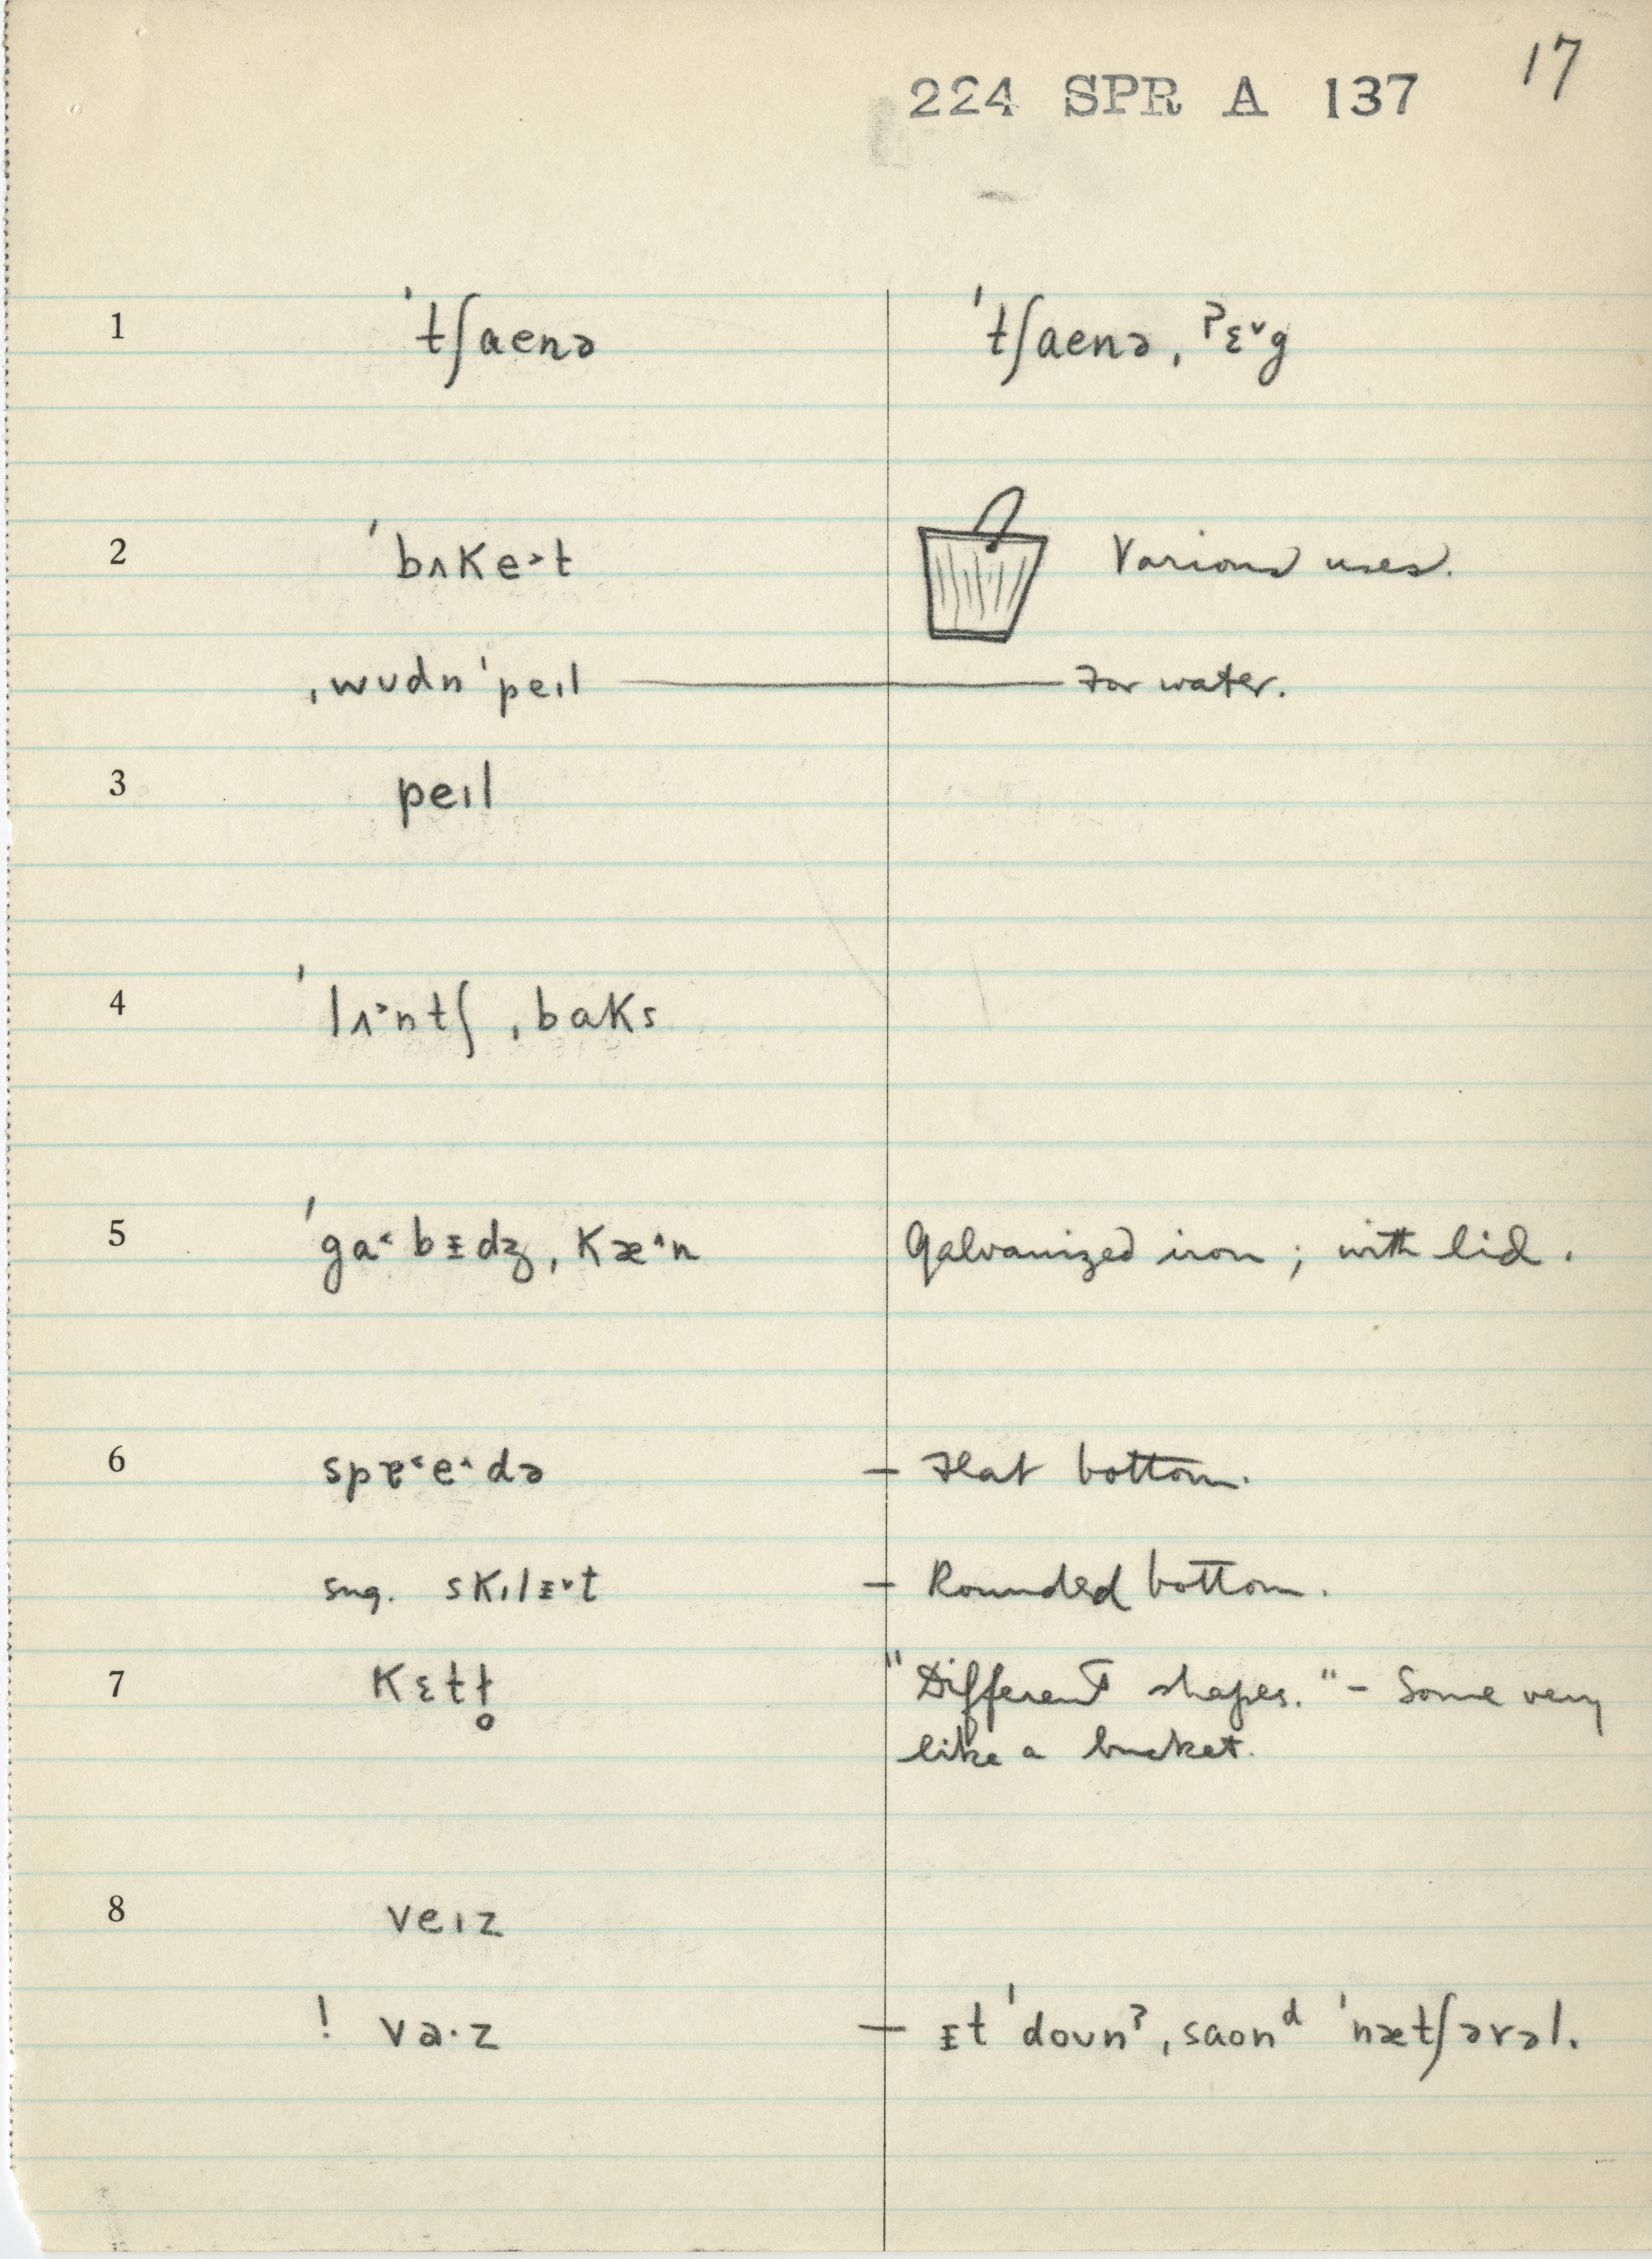 17
224 SPR A 137
1 ˈtʃaenə ˈtʃaenə ˌʔɛ˅g
2 ˈbʌKe˃t Various uses.
ˌwʊdn ˈpeɪl — For water.
3 peɪl
4 ˈlʌ˃ntʃ ˌbaKs
5 ˈga˂bɪdʒ ˌKæ˄n Galvanized iron; with lid.
6 spɐ˂e˄də — Flat bottom.
sug. sKɪlɪ˅t — Rounded bottom.
7 Kɛtɫ̥ "Different shapes." - Some very
like a bucket.
8 veɪz
! va·z — ɪt ˈdoʊnˀ ˌsaonᵈ ˈnætʃərəl.